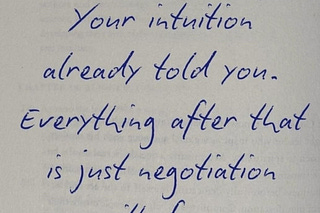 Your intuition
already told you.
Everything after that
is just negotiation